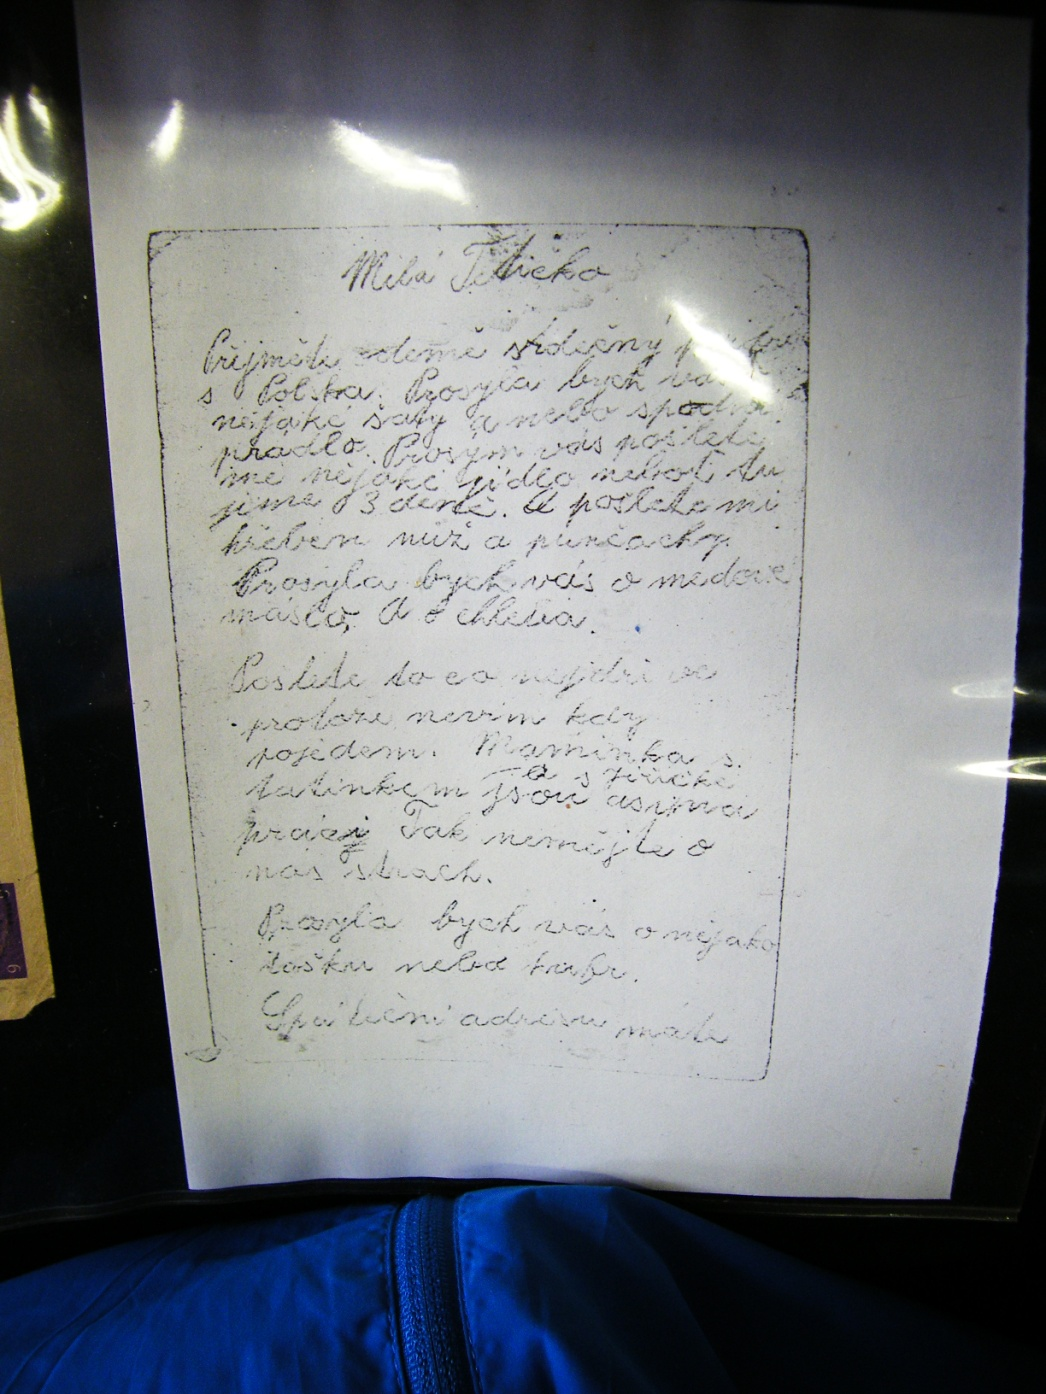 Milá Tetičko
Přijměte odemě srdečný
s Polska. Prosyla bych vás
nějaké šaty a nebo spodní
prádlo. Prosym vás pošlete
mě nějaké jídlo neboť tu
jíme 3 deně. A pošlete mi
hřeben nůž a punčochy.
Prosyla bych vás o medové
máslo, A o chleba.
Poslete to co nejdři ve
protoze nevim kdy
pojedem. Maminka s
tatinkem a s
jsou asyma
práci Tak nemějte o
nás strach.
Prosyla bych vás o nějako
tašku nebo kabr.
Spáteční adresu máte